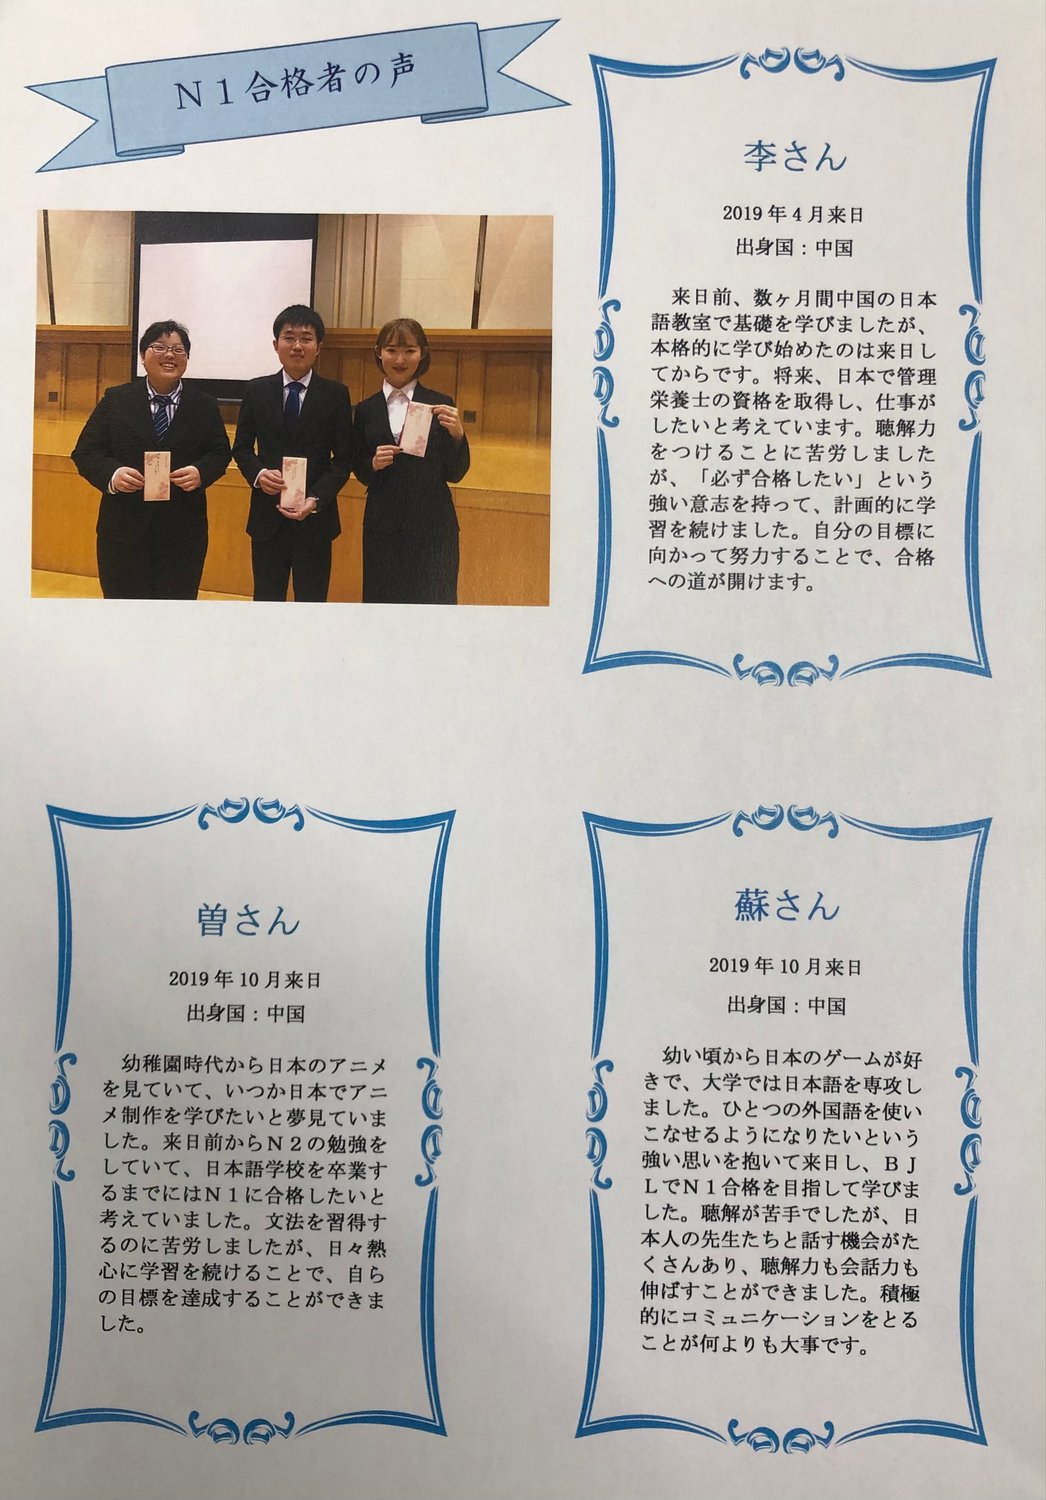 N1合格者の声
李さん
2019年4月来日
出身国：中国
来日前、数ヶ月間中国の日本
語教室で基礎を学びましたが、
本格的に学び始めたのは来日し
てからです。将来、日本で管理
栄養士の資格を取得し、仕事が
したいと考えています。聴解力
をつけることに苦労しました
が、「必ず合格したい」という
強い意志を持って、計画的に学
習を続けました。自分の目標に
向かって努力することで、合格
への道が開けます。
曽さん
2019年10月来日
出身国：中国
幼稚園時代から日本のアニメ
を見ていて、いつか日本でアニ
メ制作を学びたいと夢見ていま
した。来日前からN2の勉強を
していて、日本語学校を卒業す
るまでにはN1に合格したいと
考えていました。文法を習得す
るのに苦労しましたが、日々熱
心に学習を続けることで、自ら
の目標を達成することができま
した。
蘇さん
2019年10月来日
出身国：中国
幼い頃から日本のゲームが好
きで、大学では日本語を専攻し
ました。ひとつの外国語を使い
こなせるようになりたいという
強い思いを抱いて来日し、BJ
LでN1合格を目指して学びま
した。聴解が苦手でしたが、日
本人の先生たちと話す機会がた
くさんあり、聴解力も会話力も
伸ばすことができました。積極
的にコミュニケーションをとる
ことが何よりも大事です。